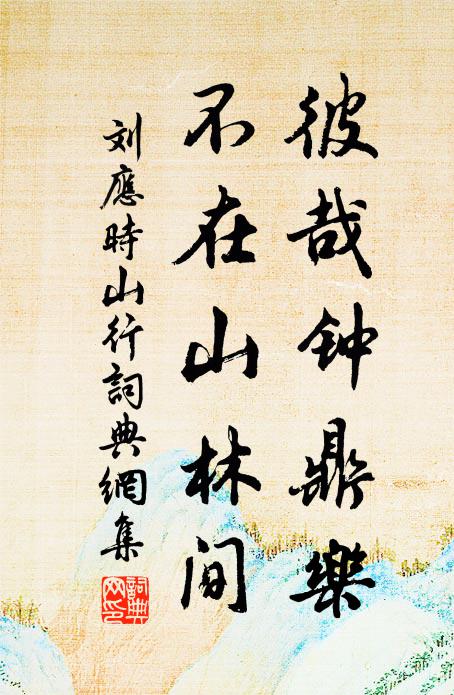 彼哉钟鼎樂
不在山林間
刘應時山行詞典網集
詞典网印